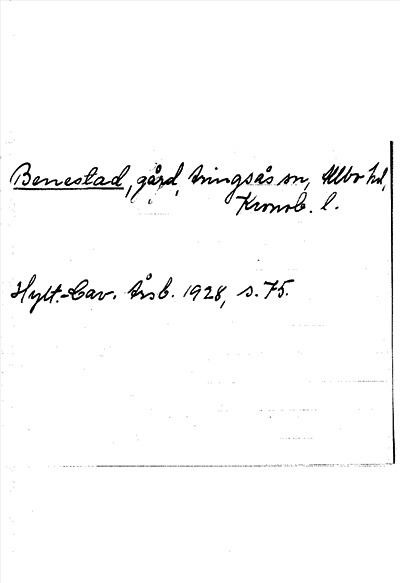 Benestad, gård, Aringsås sn, Allbo hd,
Kronob. l.
Hylt.-Cav. Årsb. 1928, s. 75.